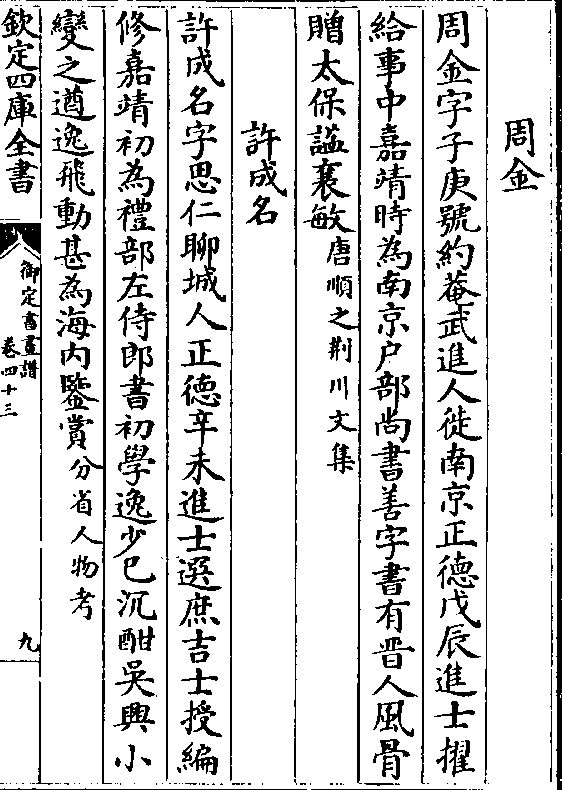 周金
周金字子庚號約菴武進人徙南京正德戊辰進士擢
給事中嘉靖時為南京户部尚書善字書有晋人風骨
贈太保諡襄敏唐順之荆川文集
許成名
許成名字思仁聊城人正德辛未進士選庶吉士授編
修嘉靖初為禮部左侍郎書初學逸少已沉酣吳興小
變之遒逸飛動甚為海内鑒賞分省人物考
欽定四庫全書
御定書畫譜
卷四十三
九